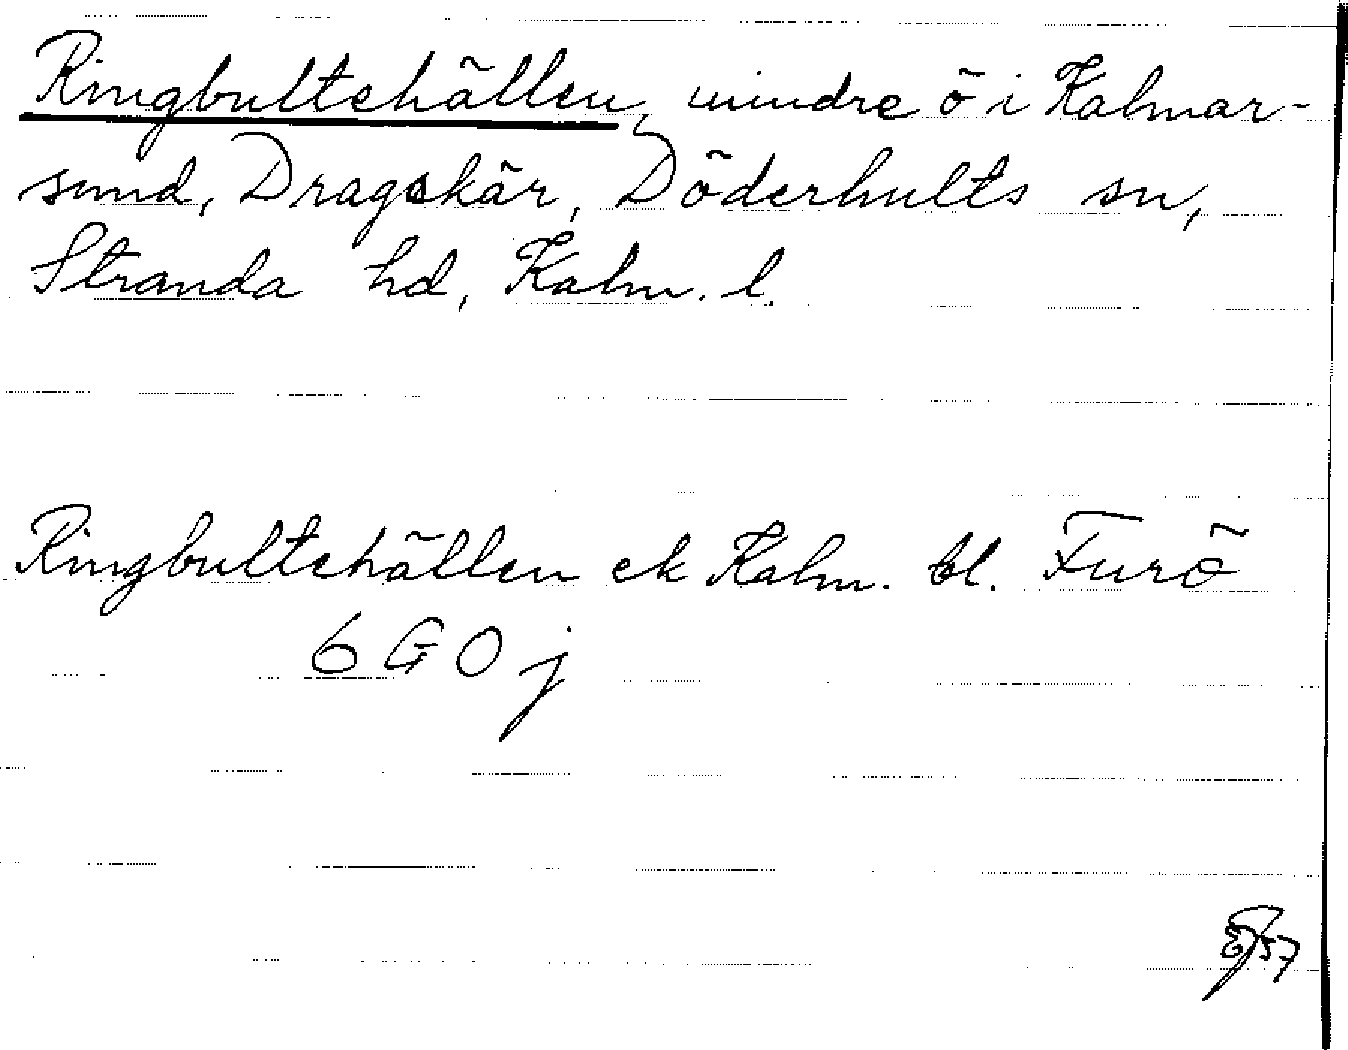 Ringbultehällen, mindre ö i Kalmar-
sund, Dragskär, Döderhults sn,
Stranda hd, Kalm. l.
Ringbultehällen ek Kalm. bl. Furö
6 G 0 j
57